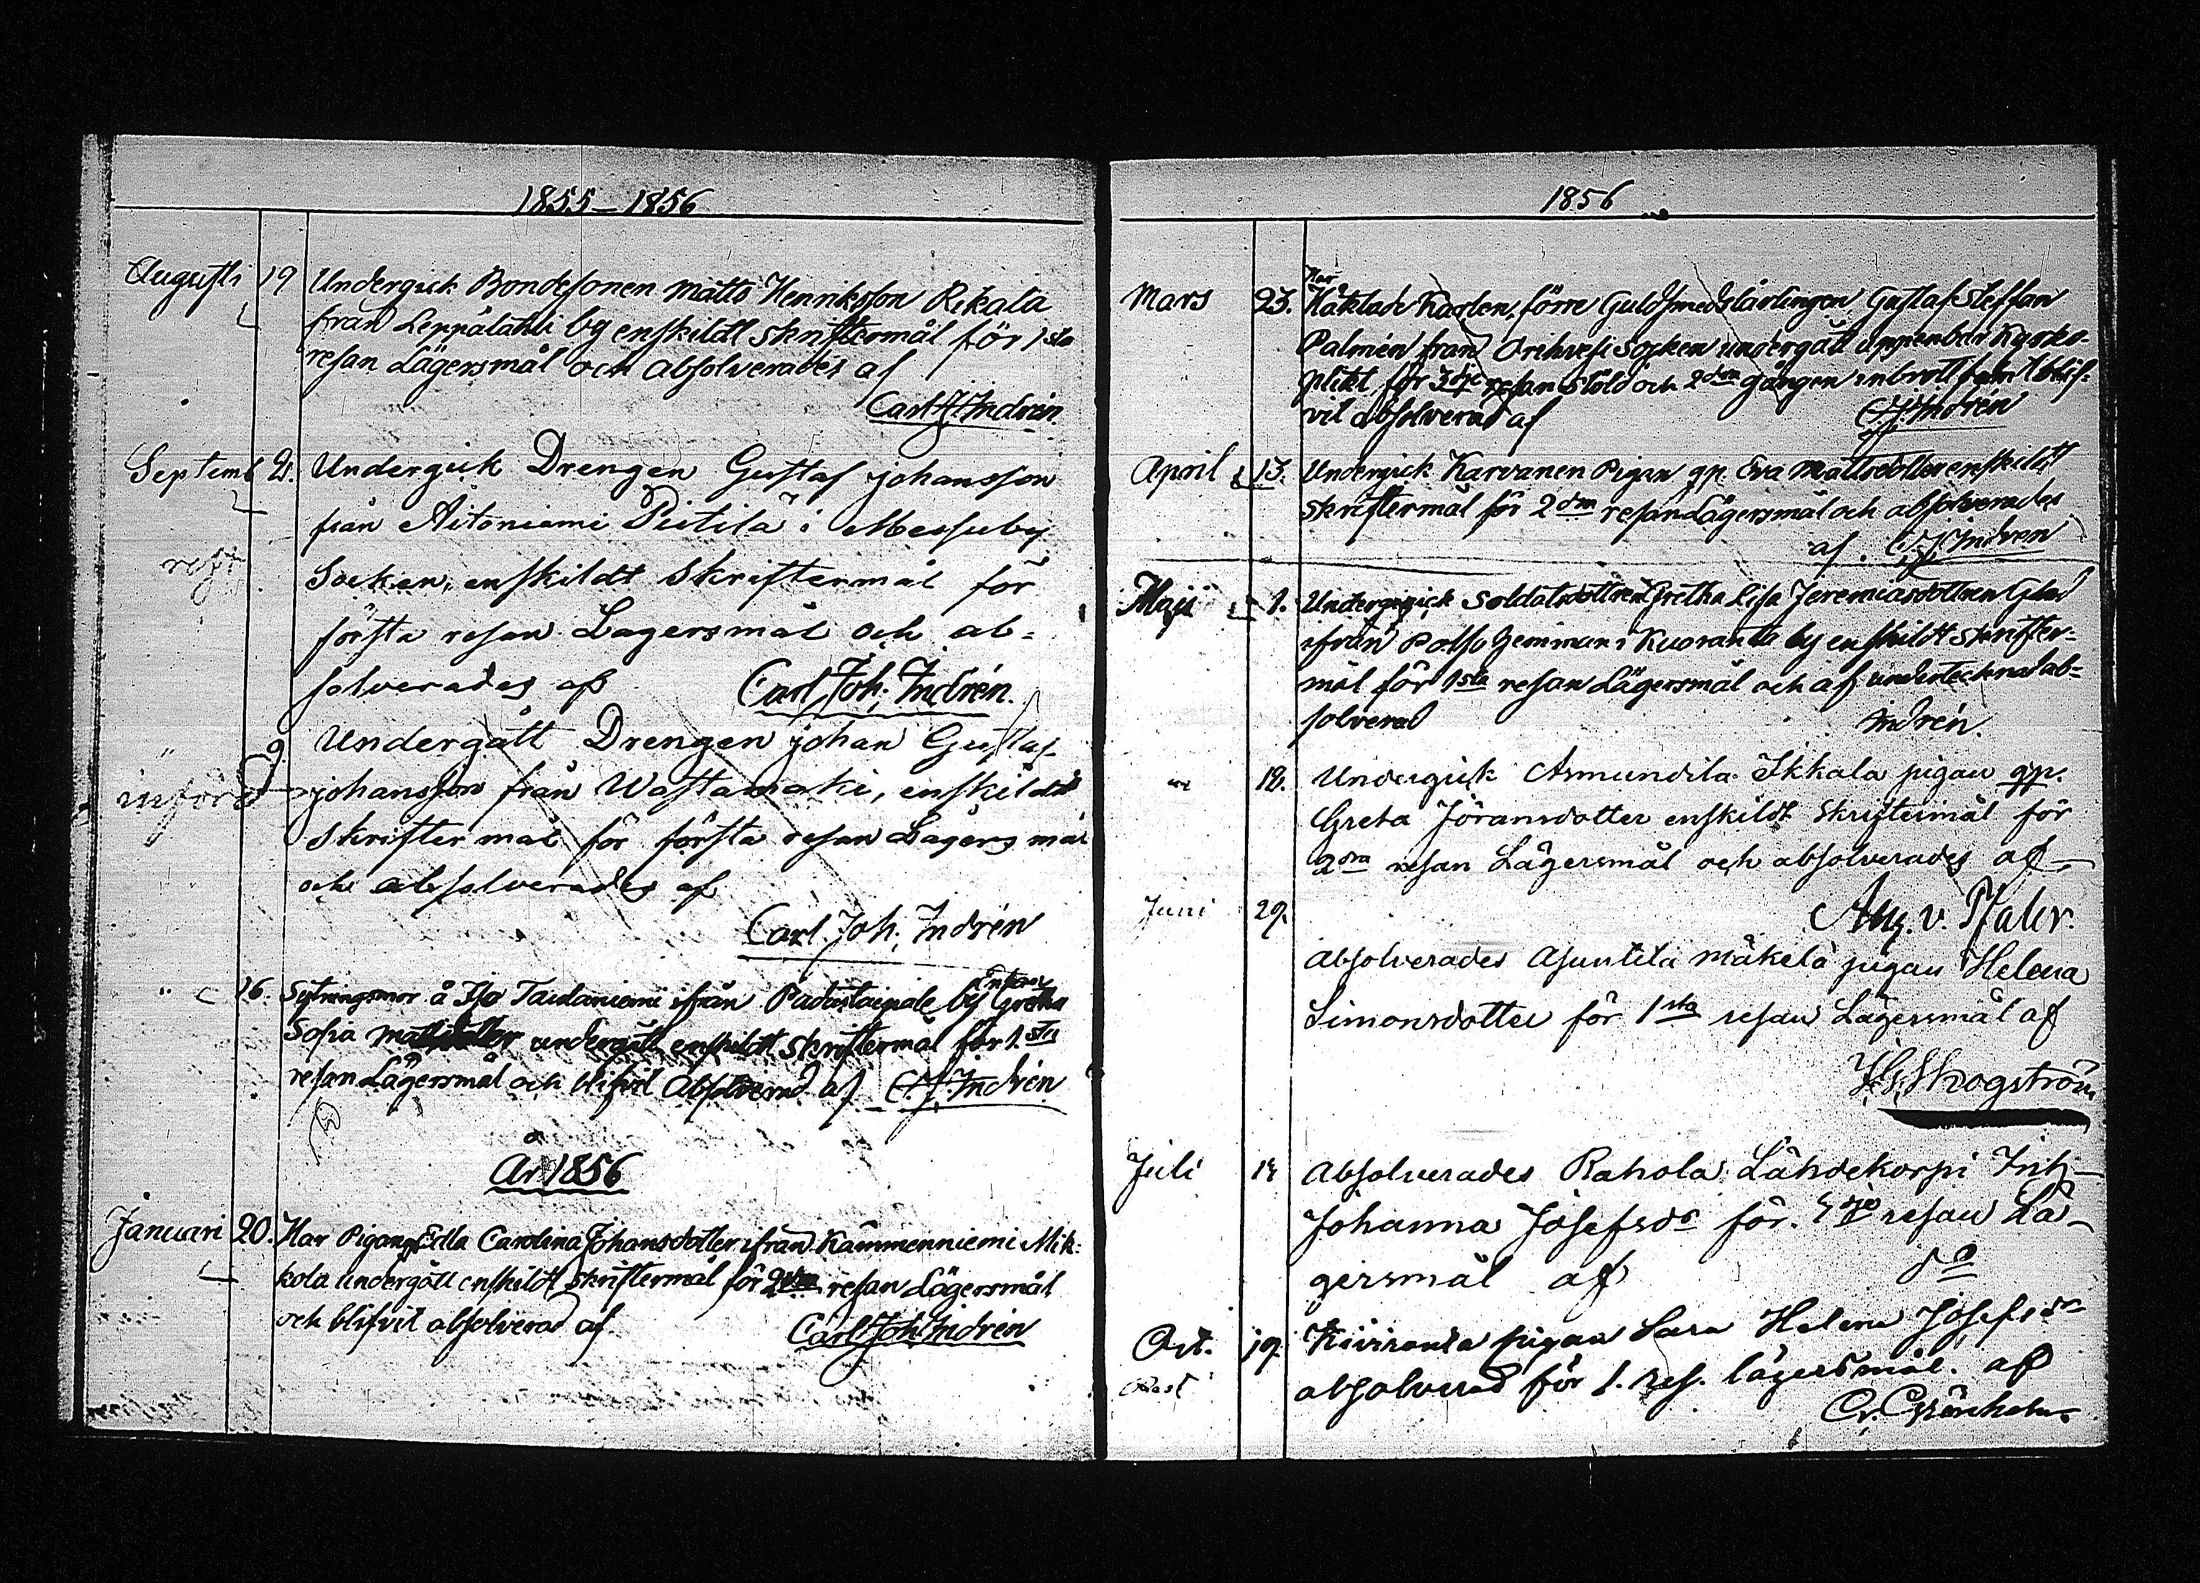 1855–1856
Augusti 19 Undergick Bondesonen Matts Henriksson Rekala
från Leppälahti by enskildt skriftermål för 1sta
resan Lägersmål och absolverades af
Carl J. Indrén.
Septemb 2. Undergick Drengen Gustaf Johansson
från Aitoniemi Pietilä i Messuby
Socken, enskildt skriftermål för
första resan Lägersmål och ab=
solverades af Carl Joh: Indrén.
" 9 Undergått Drengen Johan Gustaf
införd Johansson från Wastamaki, enskildt
skriftermål för första resan Lägersmål
och absolverades af
Carl Joh: Indrén
" 16. Sytningsmor å Iso Taulaniemi ifrån Padustaipale by Enkan Greta
Sofia undergått enskildt skriftermål för 1.sta
resan Lägersmål och blifvit Absolverad af C.J. Indrén
År 1856
Januari 20. Har Pigan Edla Carolina Johansdotter ifrån Kämmenniemi Mik:
kola undergått enskildt skriftermål för 2dra resan Lägersmål
och blifvit absolverad af Carl Joh Indrén
1856
Mars 23. Har Häktade Karlen, förre Guldsmedslärlingen Gustaf Steffan
Palmén från Orihvesi Socken undergått uppenbar Kyrko-
plikt för 3dje resan stöld och 2dra gången inbrott samt blif-
vit absolverad af C.J. Indrén
April 13. Undergick Karvanen Pigan gp. Eva Mattsdotter enskildt
skriftermål för 2dra resan Lägersmål och absolverades
af. C.J. Indrén
Maji 1. Undergick Soldatsdottren Gretha Lisa Jeremiasdottren Glad
ifrån i Kuoranta by enskildt skrifter-
mål för 1sta resan Lägersmål och af undertecknad ab-
solverad Indrén.
" 18. Undergick Asmundila Ikkala pigan gp.
Greta Jöransdotter enskildt skriftermål för
2dra resan Lägersmål och absolverades af
Aug. v. Pfaler.
Juni 29.
Absolverades Asuntila Mäkelä pigan Helena
Simonsdotter för 1sta resan Lägersmål af
H.G. Skogström
Juli 13 Absolverades Rahola Lähdekorpi Inh-
Johanna Josefsdr för. resan Lä-
gersmål af do
Oct. 19. Kiviranta pigan Sara Helena Josefsdr
absolverad för 1. res. lägersmål. af